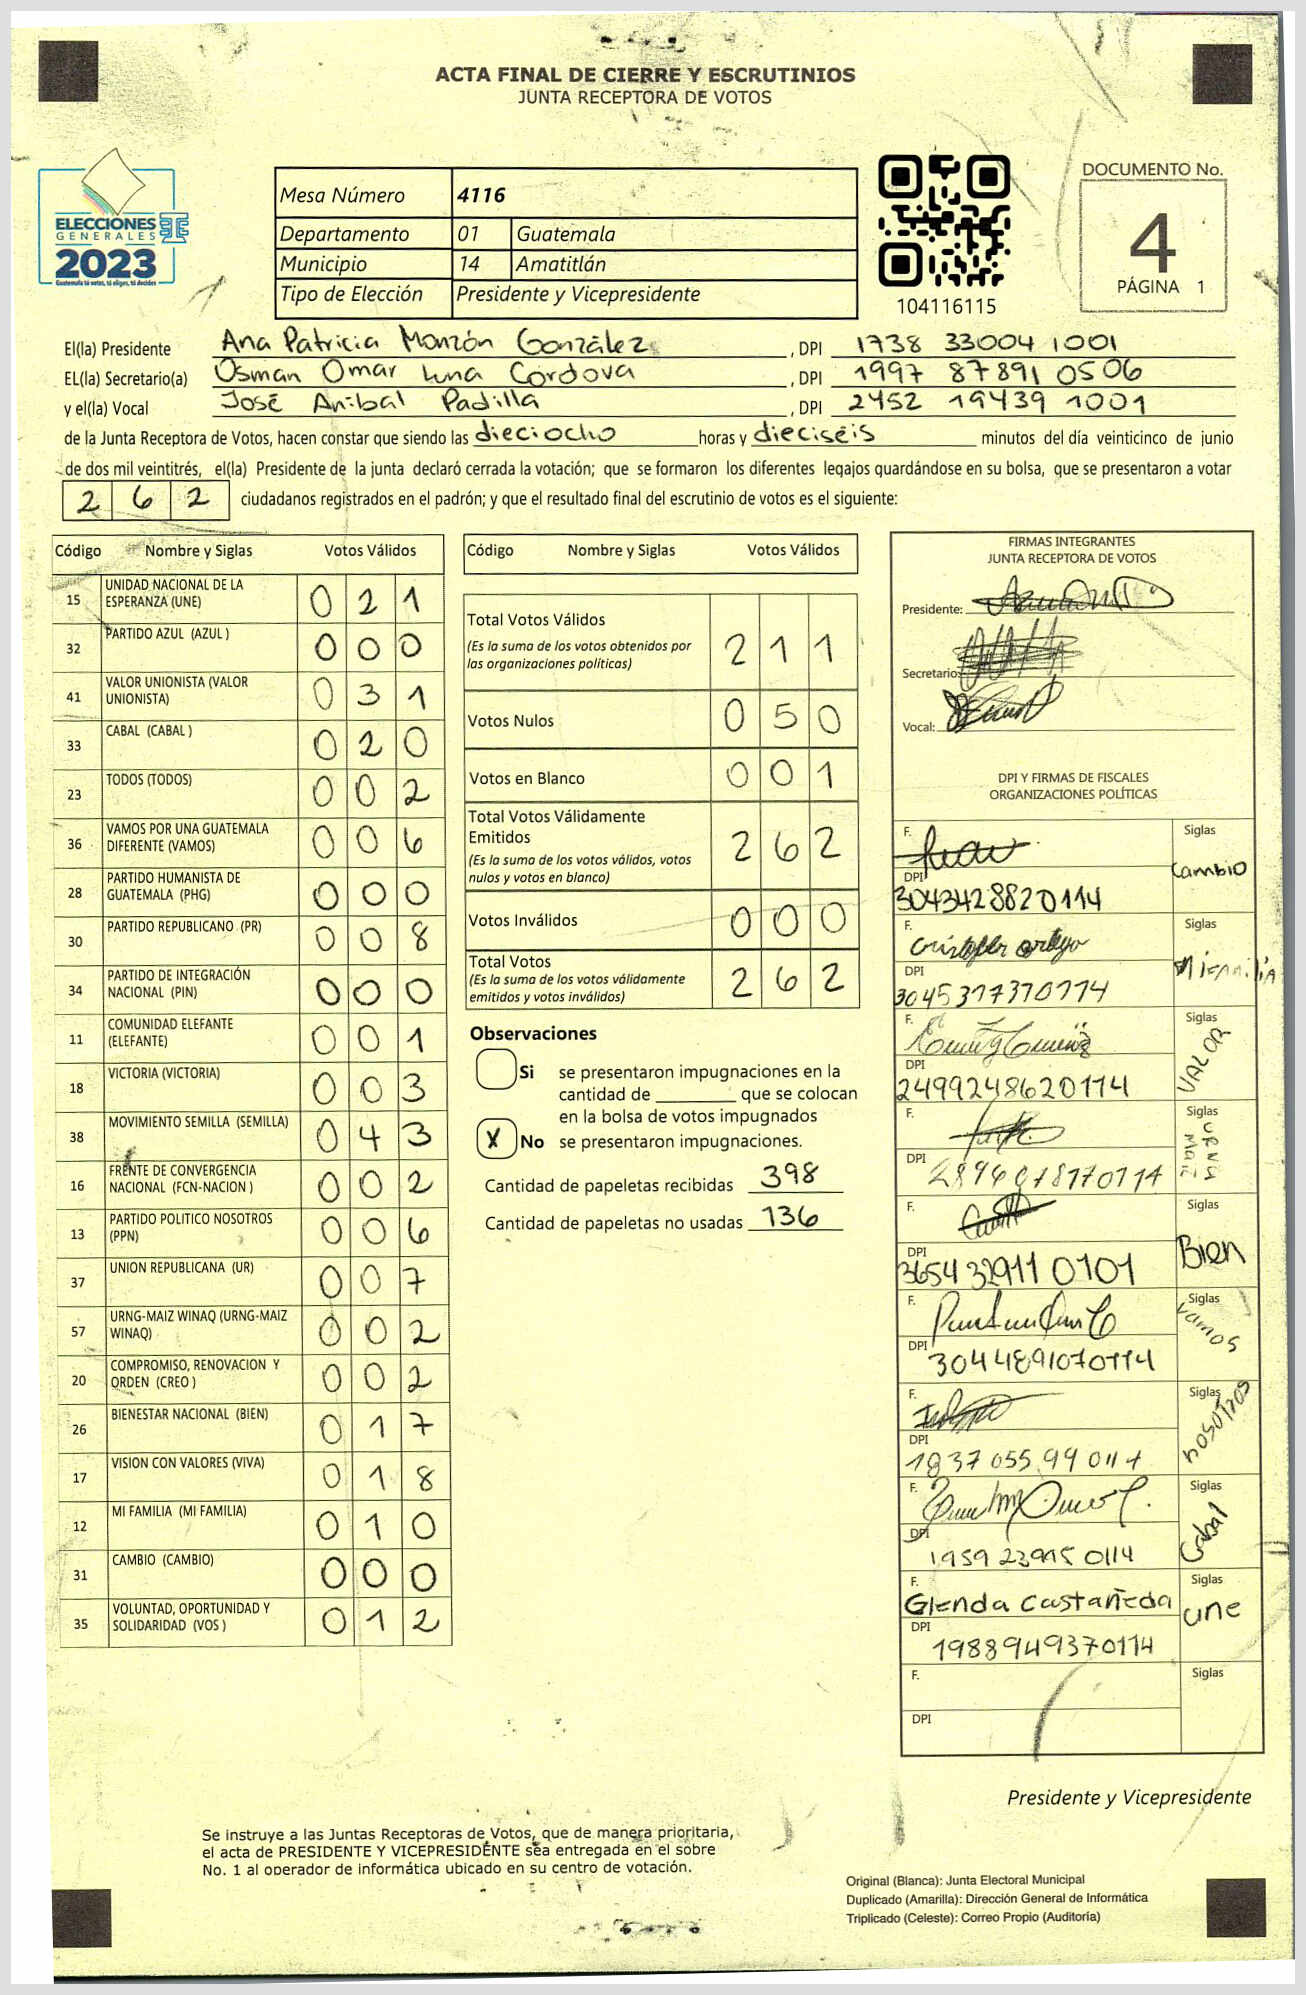 ACTA FINAL DE CIERRE Y ESCRUTINIOS
JUNTA RECEPTORA DE VOTOS
ELECCIONES
GENERALES
2023
Guatemala tú votas, tú eliges, tú decides
Mesa Número 4116
Departamento 01 Guatemala
Municipio 14 Amatitlán
Tipo de Elección Presidente y Vicepresidente
104116115
DOCUMENTO No.
4
PÁGINA 1
El(la) Presidente Ana Patricia Monzón González, DPI 1738 33004 1001
EL(la) Secretario(a) Osman Omar Luna Cordova, DPI 1997 87891 0506
y el(la) Vocal José Anibal Padilla, DPI 2452 19439 1001
de la Junta Receptora de Votos, hacen constar que siendo las dieciocho horas y dieciseis minutos del día veinticinco de junio
de dos mil veintitrés, el(la) Presidente de la junta declaró cerrada la votación; que se formaron los diferentes legajos guardándose en su bolsa, que se presentaron a votar
262 ciudadanos registrados en el padrón; y que el resultado final del escrutinio de votos es el siguiente:
Código Nombre y Siglas Votos Válidos
15 UNIDAD NACIONAL DE LA ESPERANZA (UNE) 021
32 PARTIDO AZUL (AZUL ) 000
41 VALOR UNIONISTA (VALOR UNIONISTA) 031
33 CABAL (CABAL ) 020
23 TODOS (TODOS) 002
36 VAMOS POR UNA GUATEMALA DIFERENTE (VAMOS) 006
28 PARTIDO HUMANISTA DE GUATEMALA (PHG) 000
30 PARTIDO REPUBLICANO (PR) 008
34 PARTIDO DE INTEGRACIÓN NACIONAL (PIN) 000
11 COMUNIDAD ELEFANTE (ELEFANTE) 001
18 VICTORIA (VICTORIA) 003
38 MOVIMIENTO SEMILLA (SEMILLA) 043
16 FRENTE DE CONVERGENCIA NACIONAL (FCN-NACION ) 002
13 PARTIDO POLITICO NOSOTROS (PPN) 006
37 UNION REPUBLICANA (UR) 007
57 URNG-MAIZ WINAQ (URNG-MAIZ WINAQ) 002
20 COMPROMISO, RENOVACION Y ORDEN (CREO ) 002
26 BIENESTAR NACIONAL (BIEN) 017
17 VISION CON VALORES (VIVA) 018
12 MI FAMILIA (MI FAMILIA) 010
31 CAMBIO (CAMBIO) 000
35 VOLUNTAD, OPORTUNIDAD Y SOLIDARIDAD (VOS ) 012
Código Nombre y Siglas Votos Válidos
Total Votos Válidos 211
(Es la suma de los votos obtenidos por
las organizaciones politicas)
Votos Nulos 050
Votos en Blanco 001
Total Votos Válidamente Emitidos 262
(Es la suma de los votos válidos, votos
nulos y votos en blanco)
Votos Inválidos 000
Total Votos 262
(Es la suma de los votos válidamente
emitidos y votos inválidos)
Observaciones
Si se presentaron impugnaciones en la
cantidad de ________ que se colocan
en la bolsa de votos impugnados
X No se presentaron impugnaciones.
Cantidad de papeletas recibidas 398
Cantidad de papeletas no usadas 136
FIRMAS INTEGRANTES
JUNTA RECEPTORA DE VOTOS
Presidente:
Secretario:
Vocal:
DPI Y FIRMAS DE FISCALES
ORGANIZACIONES POLÍTICAS
F. Siglas Cambio
DPI 3043428820114
F. Siglas Mi familia
DPI 3045377370114
F. Siglas VALOR
DPI 2499248620114
F. Siglas URNG MAIZ
DPI
F. Siglas Bien
DPI 3654329110101
F. Siglas Vamos
DPI 3044891070114
F. Siglas nosotros
DPI 1837 055 99 0114
F. Siglas Cabal
DPI 1959 23915 0114
F. Glenda Castañeda Siglas une
DPI 1988949370114
F. Siglas
DPI
Presidente y Vicepresidente
Se instruye a las Juntas Receptoras de Votos, que de manera prioritaria,
el acta de PRESIDENTE Y VICEPRESIDENTE sea entregada en el sobre
No. 1 al operador de informática ubicado en su centro de votación.
Original (Blanca): Junta Electoral Municipal
Duplicado (Amarilla): Dirección General de Informática
Triplicado (Celeste): Correo Propio (Auditoría)